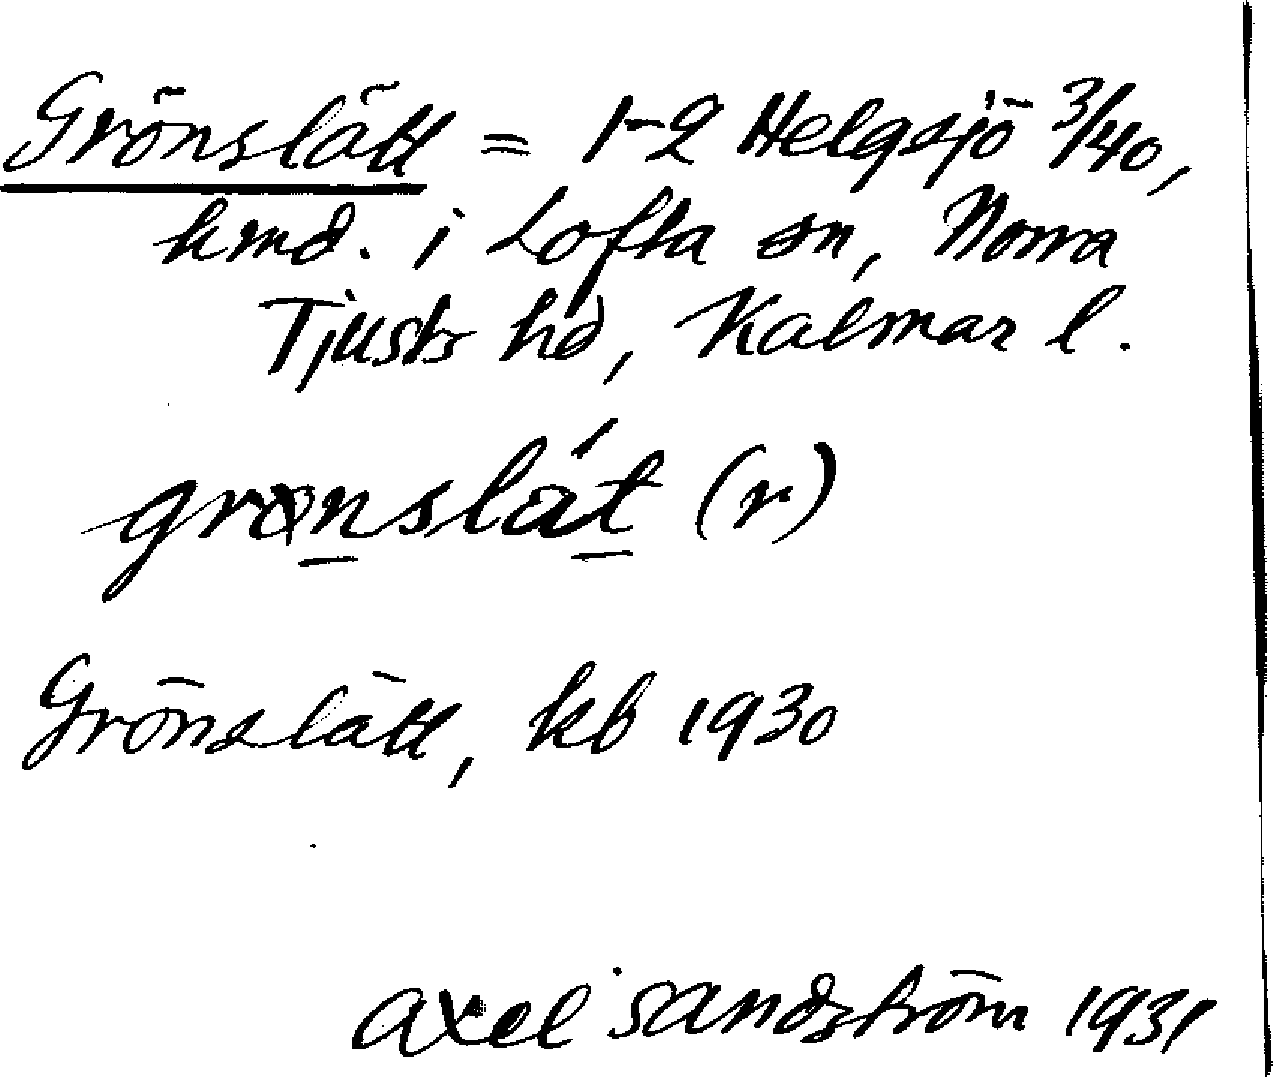 Grönslätt = 1-2 Helgsjö 3/40,
hmd. i Lofta sn, Norra
Tjusts hd, Kalmar l.
grønslåt (r)
Grönslätt, kb 1930
Axel Sandström 1931